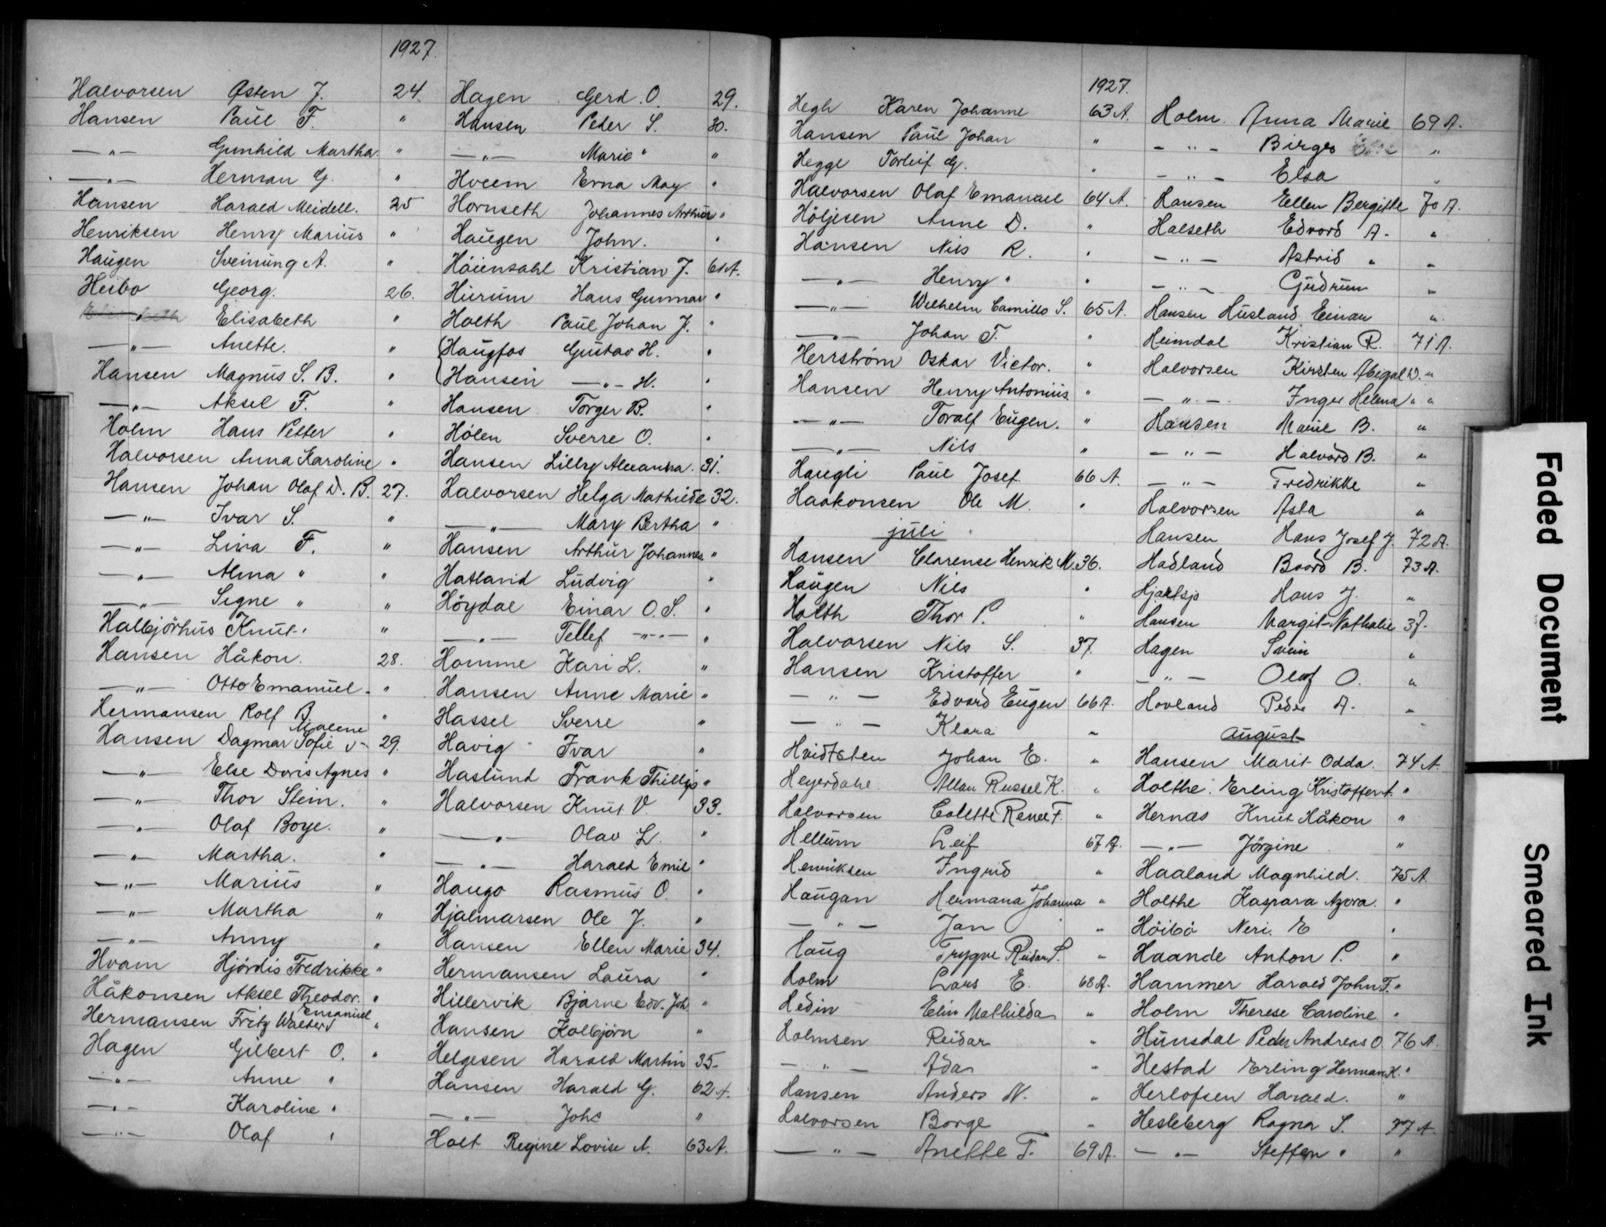 1927.
Halvorsen Østen J. 24.
Hansen Paul F. "
—"— Gunhild Martha "
—"— Herman G. "
Hansen Harald Meidell. 25
Henriksen Henry Marius "
Haugen Sveinung A. "
Heibo Georg. 26.
Elisabeth "
—"— Anette. "
Hansen Magnus S. B. "
—"— Aksel F. "
Holm Hans Petter "
Halvorsen Anna Karoline "
Hansen Johan Olaf D. B. 27.
—"— Ivar S. "
—"— Lina F. "
—"— Alma " "
—"— Signe " "
Halbjörhus Knut. "
Hansen Håkon. 28.
—"— Otto Emanuel. "
Hermansen Rolf B. "
Hansen Dagmar Sofie Malene 29.
—"— Else Doris Agnes "
—"— Thor Stein. "
—"— Olaf Boye. "
—"— Martha. "
—"— Marius "
—"— Martha "
—"— Anny "
Hvam Hjördis Fredrikke "
Håkonsen Aksel Theodor. "
Hermansen Fritz Walter Emanuel "
Hagen Gilbert O. "
—"— Anne "
—"— Karoline "
—"— Olaf "
Hagen Gerd O. 29.
Hansen Peder S. 30.
—"— Marie " "
Hveem Erna May "
Hornseth Johannes Arthur "
Haugen John. "
Höiensahl Kristian J. 61 A.
Hurum Hans Gunnar "
Holth Paul Johan J. "
(Haugfos Gustav H. "
(Hansen —"— H. "
Hansen Torger B. "
Hölen Sverre O. "
Hansen Lilly Alexandra. 31.
Halvorsen Helga Mathilde 32.
—"— Mary Bertha "
Hansen Arthur Johannes "
Hatland Ludvig "
Höydal Einar O. S. "
—"— Tellef —"— "
Homme Kari L. "
Hansen Anne Marie "
Hassel Sverre "
Havig Ivar "
Haslund Frank Phillips "
Halvorsen Knut V 33.
—"— Olav L. "
—"— Harald Emil "
Haugo Rasmus O. "
Hjalmarsen Ole J. "
Hansen Ellen Marie 34.
Hermansen Laura "
Hillervik Bjarne Edv. Joh. "
Hansen Kolbjørn "
Helgesen Harald Martin 35
Hansen Harald G. 62 A.
—"— Johs "
Holt Regine Lovise A. 63 A.
1927.
Hegh Karen Johanne 63 A.
Hansen Paul Johan "
Hegge Torleif G. "
Halvorsen Olaf Emanuel 64 A.
Höljesen Anne D. "
Hansen Nils R. "
—"— Henry " "
—"— Wilhelm Camillo S. 65 A.
—"— Johan T. "
Herrström Oskar Victor. "
Hansen Henry Antonius "
—"— Toralf Eugen. "
—"— Nils "
Haugli Paul Josef 66 A.
Haakonsen Ole M. "
juli
Hansen Clarense Henrik M. 36.
Haugen Nils "
Holth Thor P. "
Halvorsen Nils S. 37.
Hansen Kristoffer "
—"— Edvard Eugen 66 A.
—"— Klara "
Hvidtsten Johan E. "
Heyerdahl Allan Russel K. "
Halvorsen Colette Renee F. "
Hellum Leif 67 A.
Henriksen Ingrid "
Haugan Hermana Johanna "
—"— Jan "
Haug Trygve Reidar S. "
Holm Lars E. 68 A.
Hedin Elin Mathilda "
Holmsen Reidar "
—"— Ada "
Hansen Anders N. "
Halvorsen Borge "
—"— Anette T. 69 A.
Holm Anna Marie 69 A.
—"— Birger "
—"— Elsa "
Hansen Ellen Bergitte 70 A.
Halseth Edvard A. "
—"— Astrid " "
—"— Gudrun "
Hansen Husland Einar "
Heimdal Kristian R. 71 A.
Halvorsen Kirsten Abigal D. "
—"— Inger Helena " "
Hansen Marie B. "
—"— Halvard B. "
—"— Fredrikke "
Halvorsen Asla "
Hansen Hans Josef J. 72 A.
Hadland Baard B. 73 A.
Hjartsjø Hans J. "
Hansen Margit Nathalie 37.
Hagen Svein "
—"— Olaf O. "
Hovland Peder A. "
august
Hansen Marit Odda. 74 A.
Holthe Erling Kristoffer A. "
Hernæs Knut Håkon "
—"— Jörgine "
Haaland Magnhild. 75 A
Holthe Kaspara Azora. "
Höibö Neri E "
Haande Anton P. "
Hammer Harald John F. "
Holm Therese Caroline "
Hunsdal Peder Andreas O. 76 A.
Hestad Erling Herman K. "
Herlofsen Harald. "
Hesleberg Ragna S. 77 A.
—"— Steffen " "
Faded Document
Smeared Ink